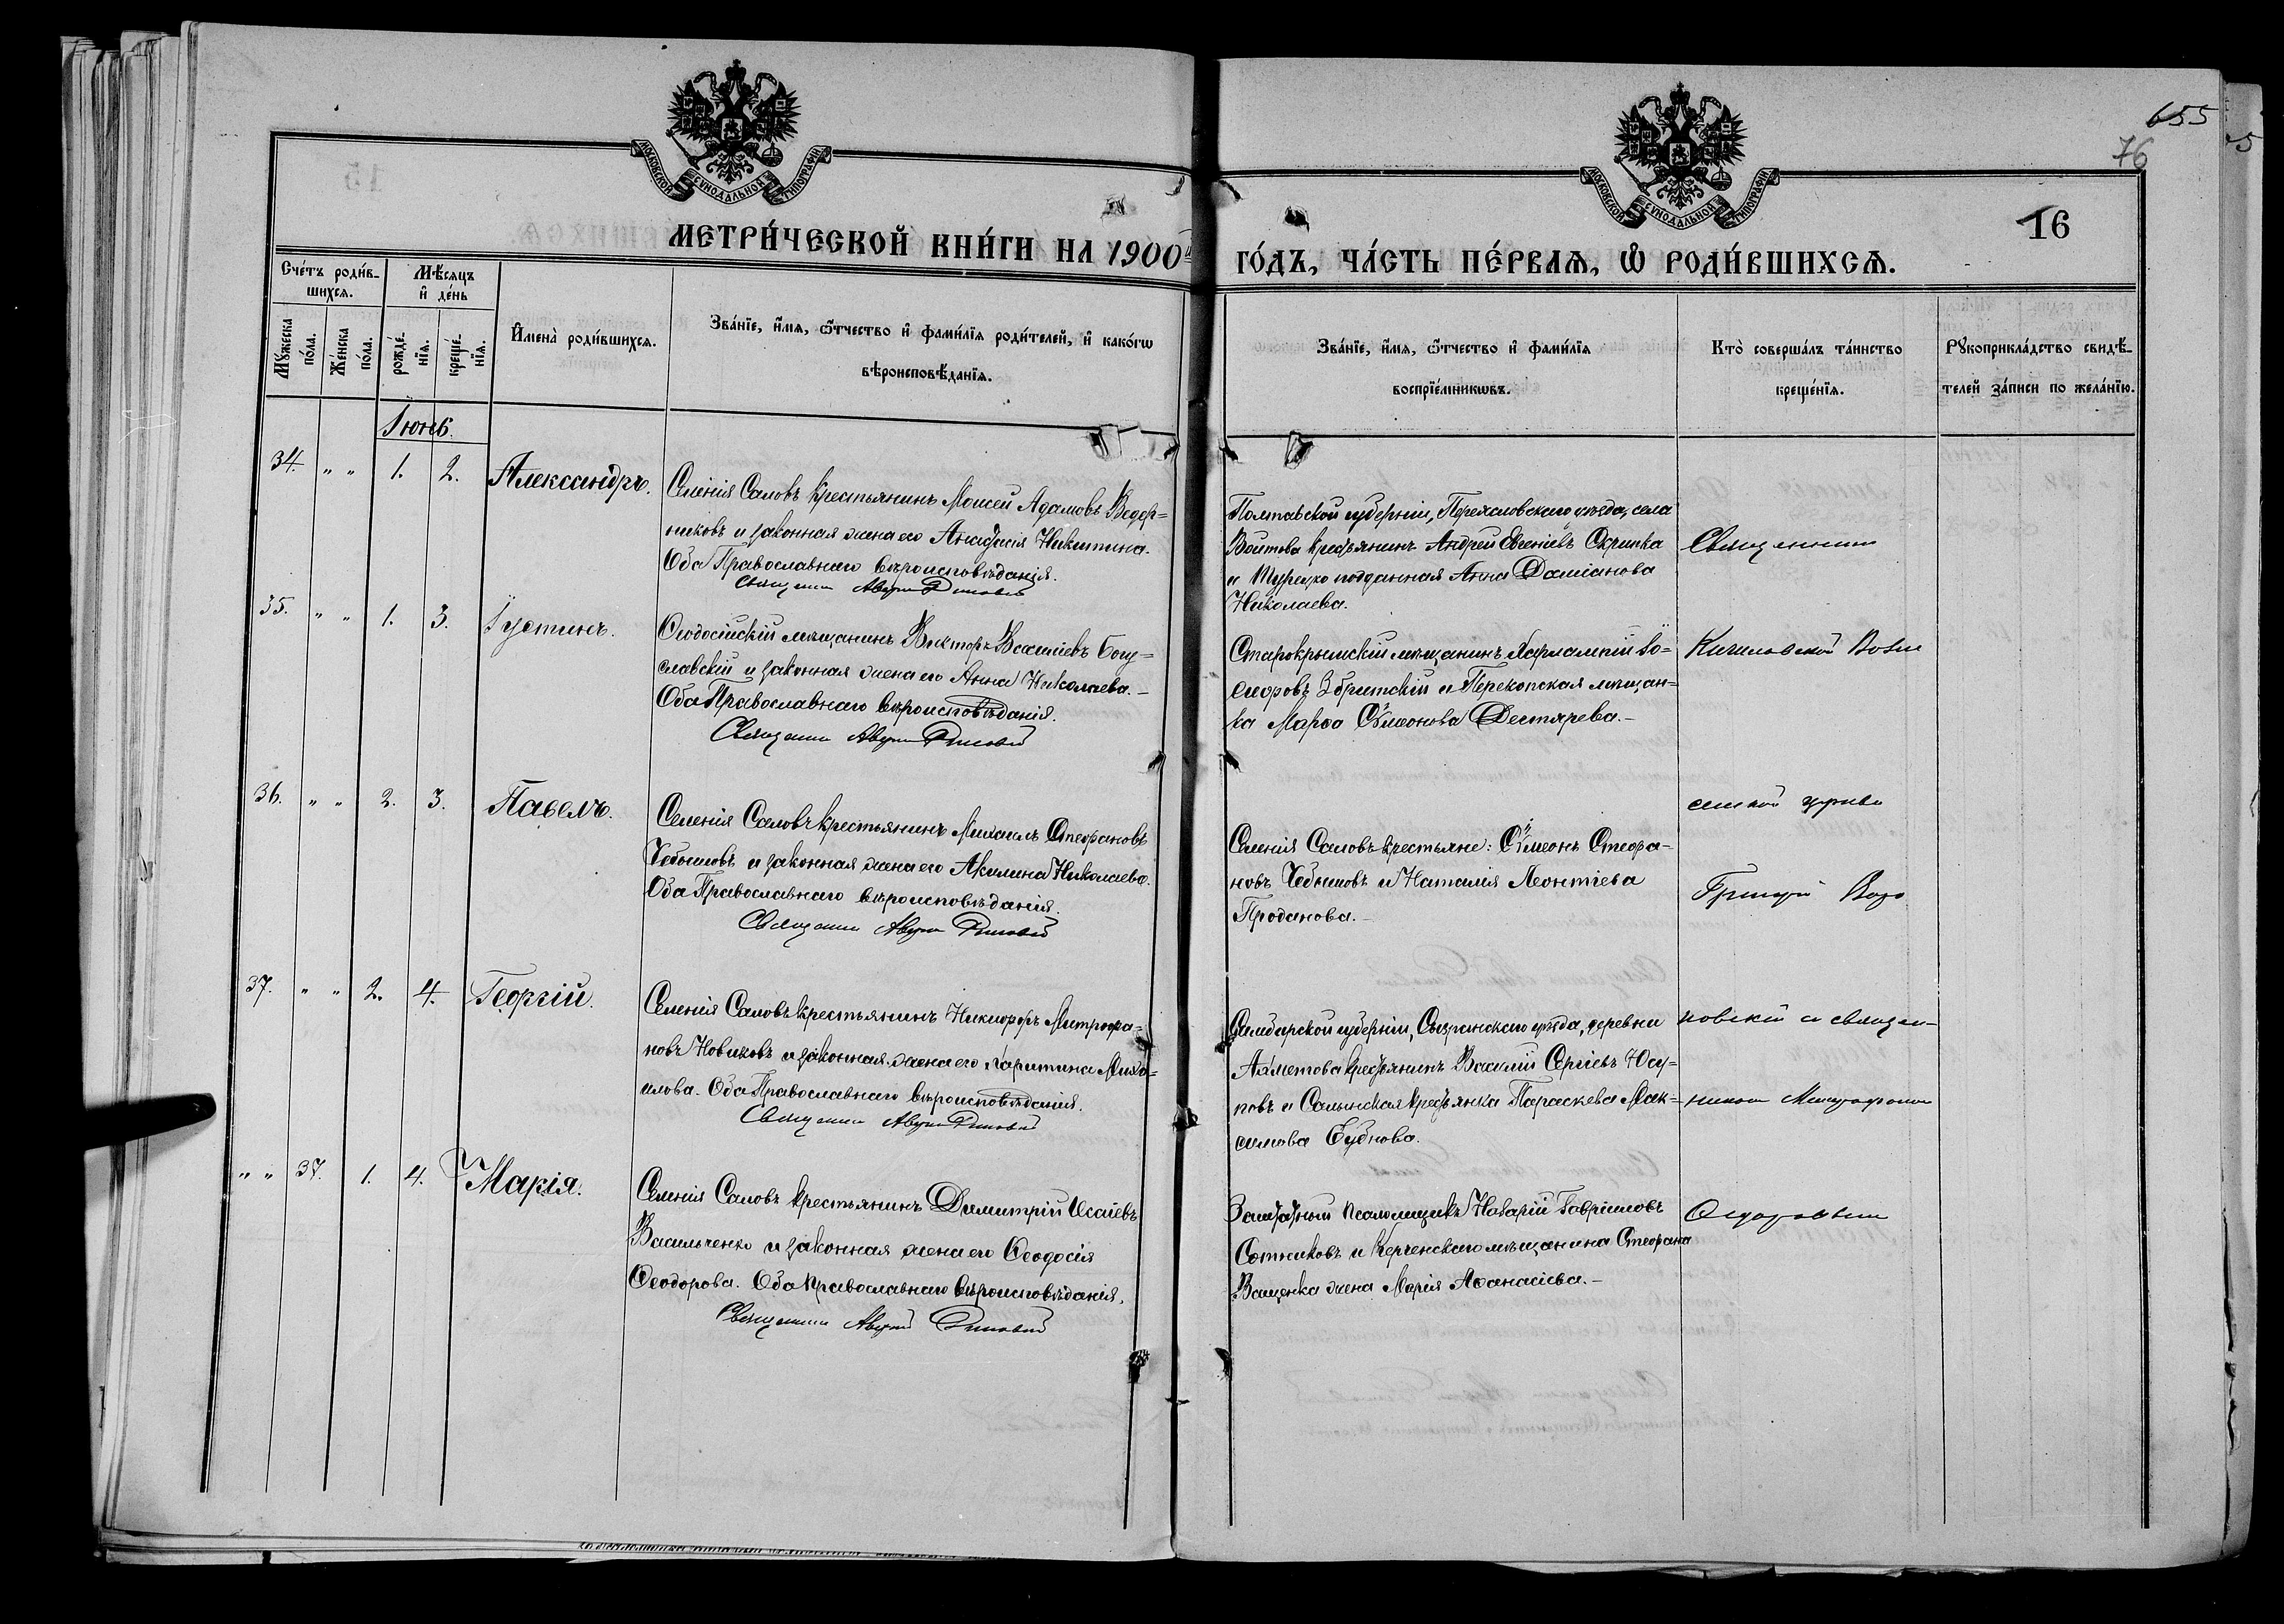 655
76
16
МОСКОВСКОЙ СѴНОДАЛЬНОЙ ТИПОГРАФІИ
МОСКОВСКОЙ СѴНОДАЛЬНОЙ ТИПОГРАФІИ
МЕТРИ́ЧЕСКОЙ КНИ́ГИ НА 1900й
ГО́ДЪ, ЧА́СТЬ ПЕ́РВАѦ, Ѡ҆ РОДИ́ВШИХСѦ.
Сче́тъ роди́в-
шихсѧ.
Мѣ́сѧцъ
и҆ де́нь
Мꙋ́жеска
по́ла.
Же́нска
по́ла.
рожде́-
нїѧ.
креще́-
нїѧ.
И҆мена̀ роди́вшихсѧ.
Зва́нїе, и҆́мѧ, ѻ҆́тчество и҆ фами́лїѧ роди́телей, и҆ како́гѡ
вѣроисповѣ́данїѧ.
Зва́нїе, и҆́мѧ, ѻ҆́тчество и҆ фами́лїѧ
воспрїе́мникѡвъ.
Кто̀ соверша́лъ та́инство
креще́нїѧ.
Рꙋкоприкла́дство свидѣ́-
телей за́писи по жела́нїю.
Іюнь.
34. " " 1. 2. Александръ.
Селенія Саловъ крестьянинъ Моисей Адамовъ Ведер=
никовъ и законная жена его Анастасія Никитина.
Оба Православнаго вѣроисповѣданія.
Священникъ
Полтавской губерніи, Переяславскаго уѣзда, села
Войтова крестьянинъ Андрей Евгеніевъ Скрипка
и Турецко подданная Анна Даміанова
Николаева.
Священники
35. " " 1. 3. Іустинъ.
Ѳеодосійскій мѣщанинъ Викторъ Василіевъ Богу=
славскій и законная жена его Анна Николаева.-
Оба Православнаго вѣроисповѣданія.
Священникъ
Старокрымскій мѣщанинъ Харлампій Ѳо-
Збритскій и Перекопская мѣщан=
ка Марѳа Сѵмеонова Дегтярева.-
36. " " 2. 3. Павелъ.
Селенія Саловъ крестьянинъ Михаилъ Стефановъ
Чебышовъ и законная жена его Акилина Николаева.
Оба Православнаго вѣроисповѣданія.
Священникъ
Селенія Саловъ крестьяне: Сѵмеонъ Стефа-
новъ Чебышовъ и Наталія Леонтіева
Проданова.-
церкви
Григорій
37. " " 2. 4. Георгій.
Селенія Саловъ крестьянинъ Никифоръ Митрофа=
новъ Новиковъ и законная жена его Харитина Миха=
илова. Оба Православнаго вѣроисповѣданія.
Священникъ
Симбирской губерніи, Сызранскаго уѣзда, деревни
Ахметова крестьянинъ Василій Сергіевъ Юсу=
повъ и Салынская крестьянка Параскева Мак=
симова Бубнова.
новскій и священ-
" " 37. 1. 4. Марія.
Селенія Саловъ крестьянинъ Димитрій Исаіевъ
Васильченко и законная жена его Ѳеодосія
Ѳеодорова. Оба Православнаго вѣроисповѣданія.
Священникъ
Заштатный псаломщикъ Назарій Гавріиловъ
Сотниковъ и Керченскаго мѣщанина Стефана
Ващенка жена Марія Аѳанасіева.-